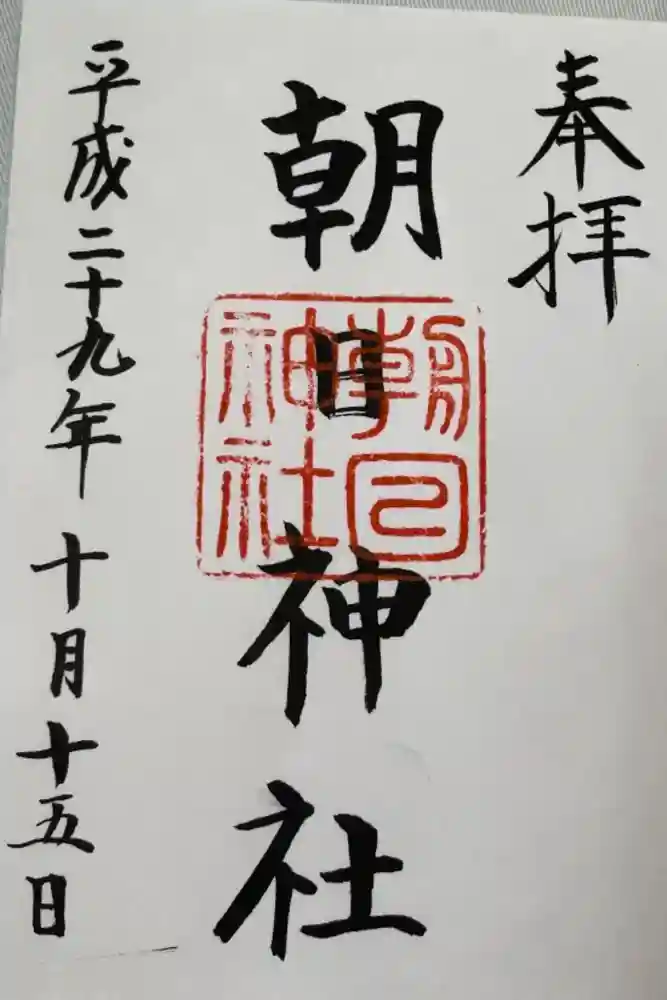 奉拝
朝日神社
朝日
神社
平成二十九年 十月十五日